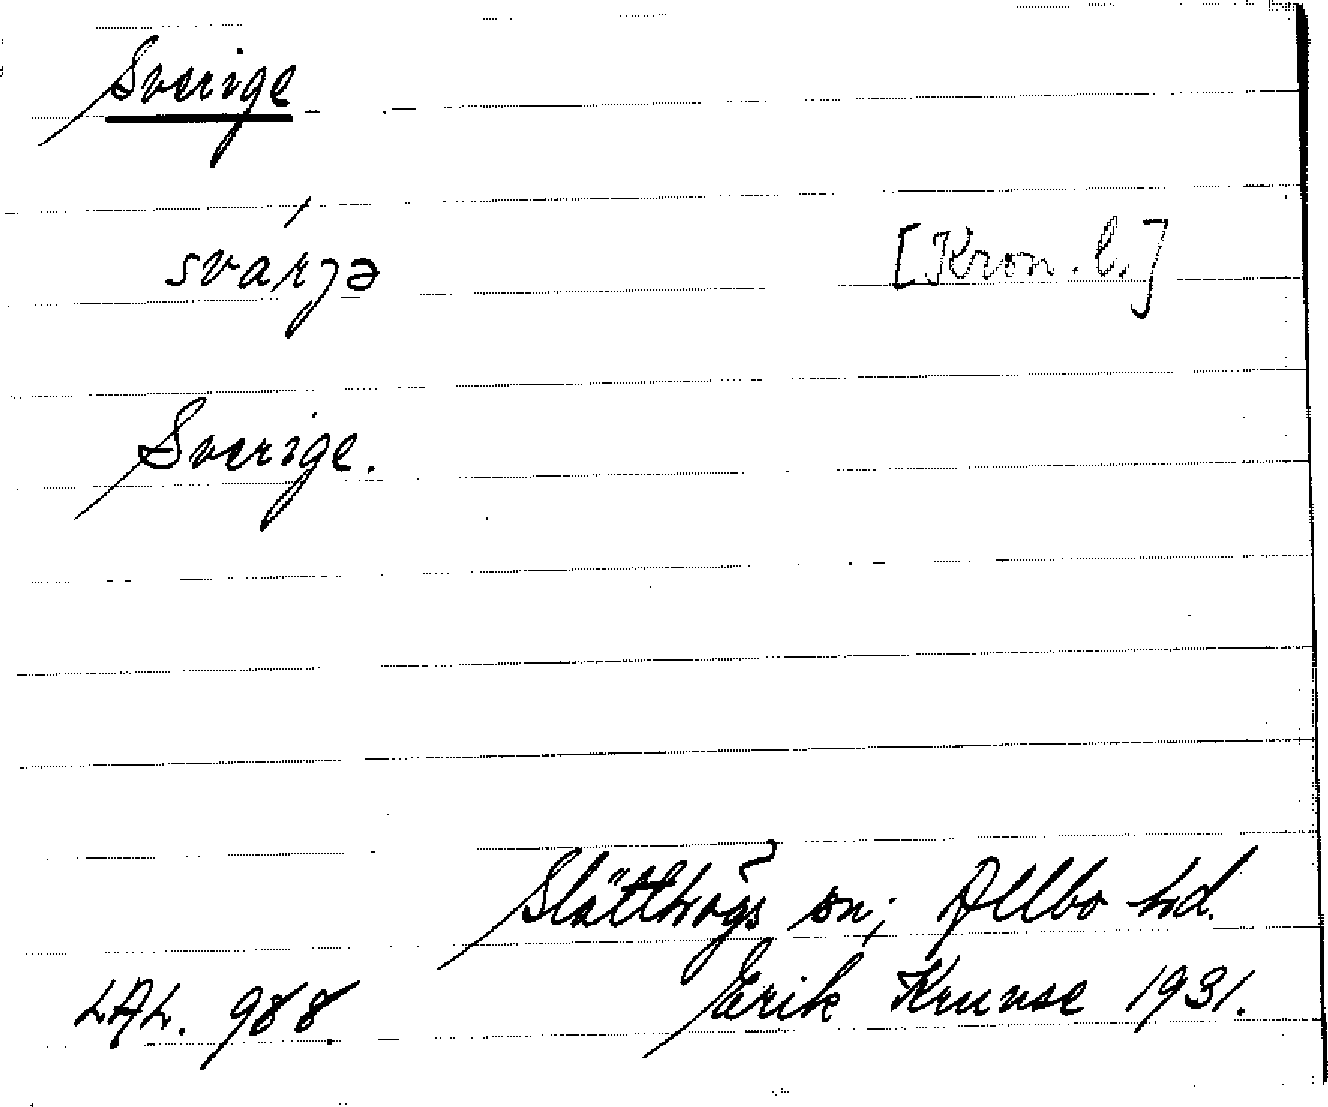 Sverige
svárjə [Kron. l.]
Sverige.
Slätthögs sn; Allbo hd.
LAL. 988 Erik Kruuse 1931.